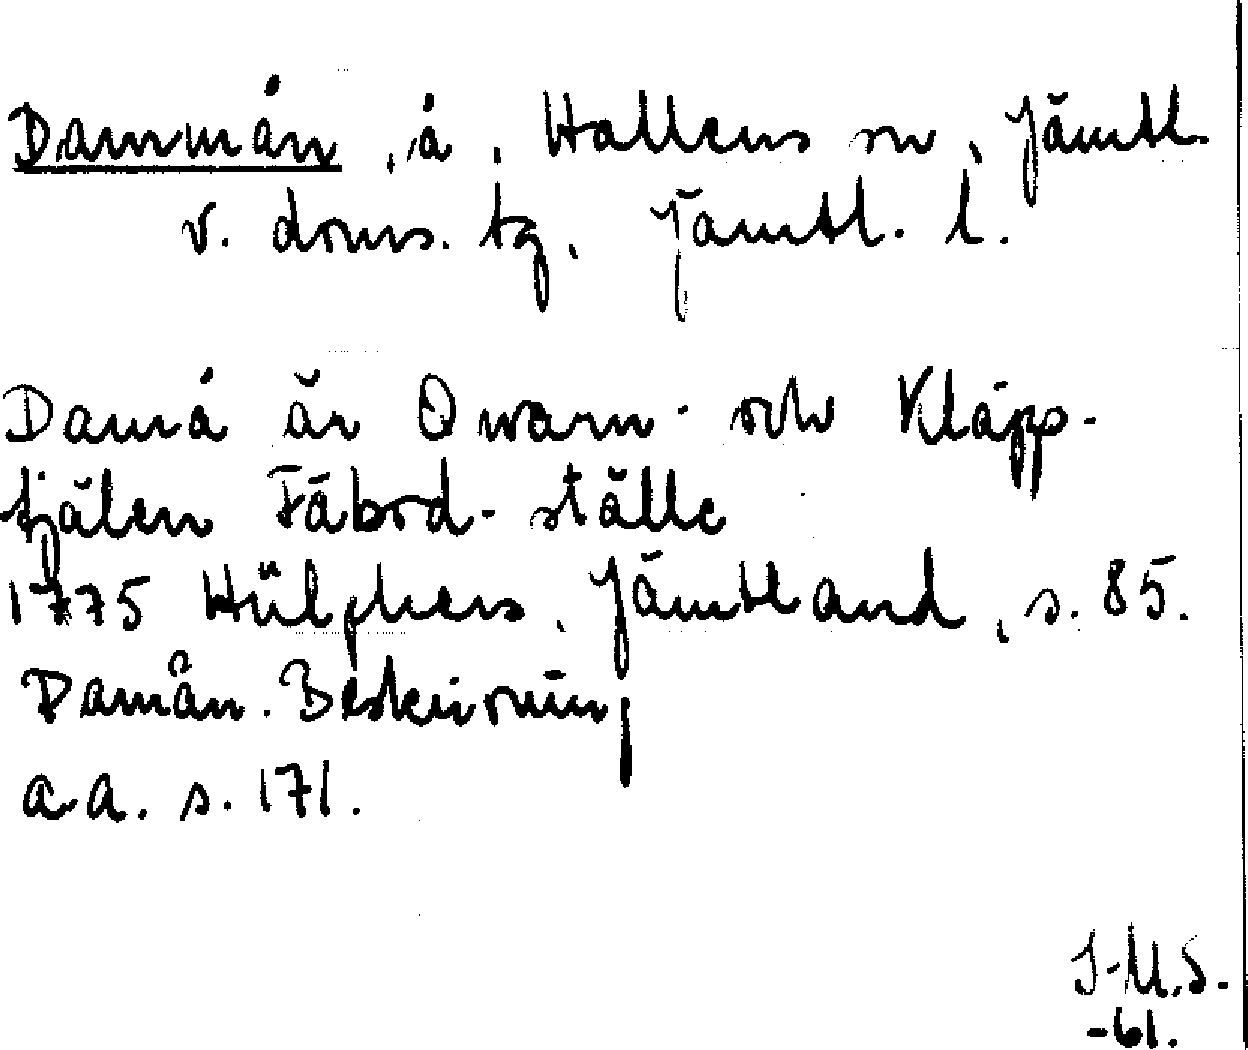 Dammån, å, Hallens sn, Jämtl.
v. doms. tg, Jämtl. l.
Damå är Qwarn- och Kläpp-
fjälen Fäbod-ställe
1775 Hülphers, Jämtland, s. 85.
Damån. Beskrivning
a.a. s. 171.
J-M.S.
-61.